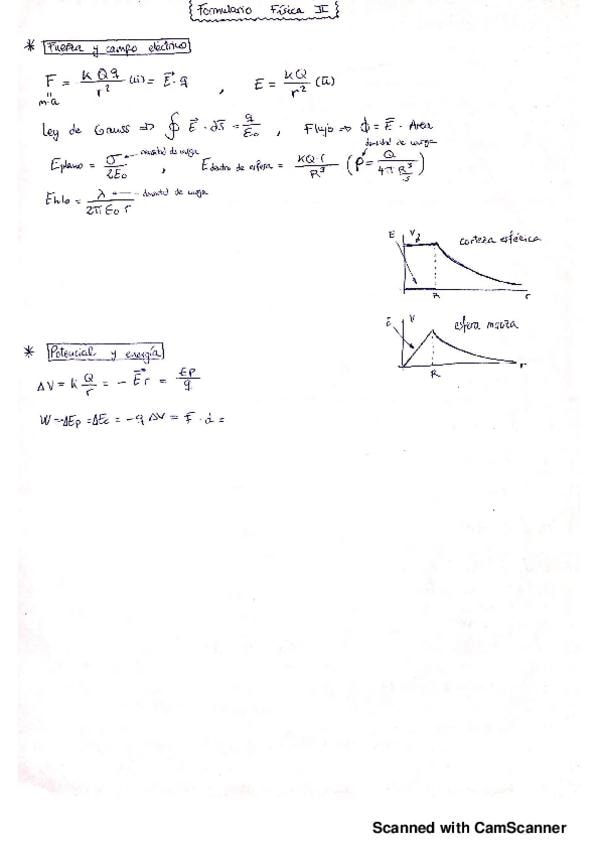 Formulario Física II
* Fuerza y campo eléctrico
F = K Q q / r² (ū) = E⃗ · q , E = K Q / r² (ū)
m·a
Ley de Gauss => ∮ E⃗ · ds⃗ = q / ε₀ , Flujo => ϕ = E⃗ · Area
Eplano = σ / 2ε₀ densidad de carga , E dentro de esfera = KQ·r / R³ (ρ = Q / 4π R³/3) densidad de carga
Ehilo = λ / 2π ε₀ r densidad de carga
E V
corteza esférica
R r
E V
esfera maciza
R r
* Potencial y energía
ΔV = k Q / r = - E⃗ r = EP / q
W = -ΔEp = ΔEc = - q ΔV = F · d =
Scanned with CamScanner